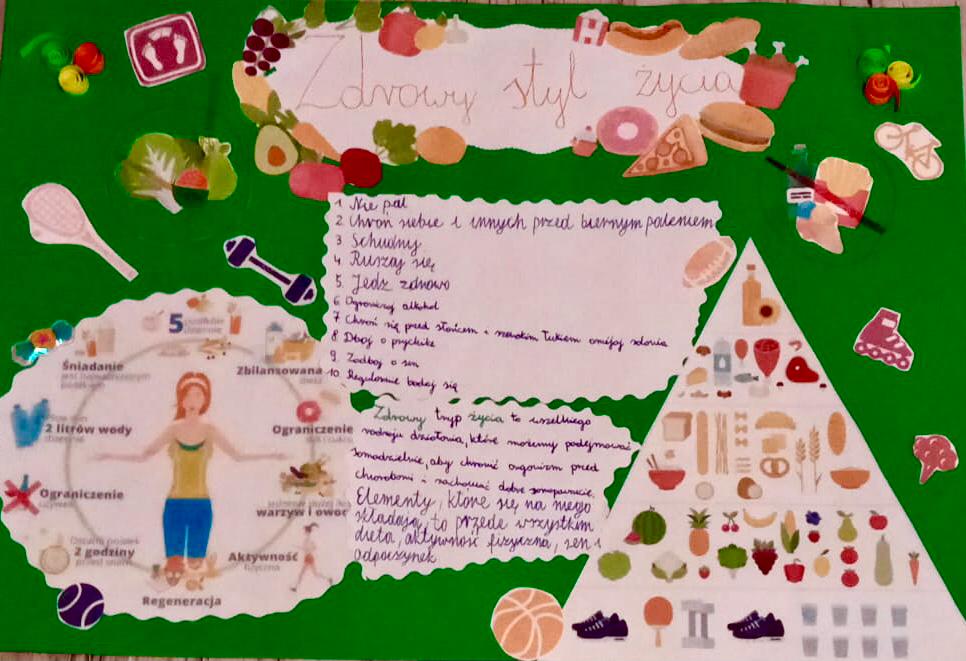 Zdrowy styl życia
1 Nie pal
2 Chroń siebie i innych przed biernym paleniem
3 Schudnij
4 Ruszaj się
5. Jedz zdrowo
6 Ograniczaj alkohol
7 Chroń się przed słońcem i szerokim łukiem omijaj solaria
8 Dbaj o psychikę
9. Zadbaj o sen
10. Regularnie badaj się
Zdrowy tryp życia to wszelkiego
rodzaju działania, które możemy podejmować
samodzielnie, aby chronić organizm przed
chorobami i zachować dobre samopoczucie.
Elementy, które się na niego
składają, to przede wszystkim
dieta, aktywność fizyczna, sen i
odpoczynek
5 posiłków
dziennie
Śniadanie
jest najważniejszym
posiłkiem
Zbilansowana
dieta
2 litrów wody
dziennie
Ograniczenie
soli i cukru
Ograniczenie
używek
warzyw i owoc
Ostatni posiłek
2 godziny
przed snem
Aktywność
fizyczna
Regeneracja